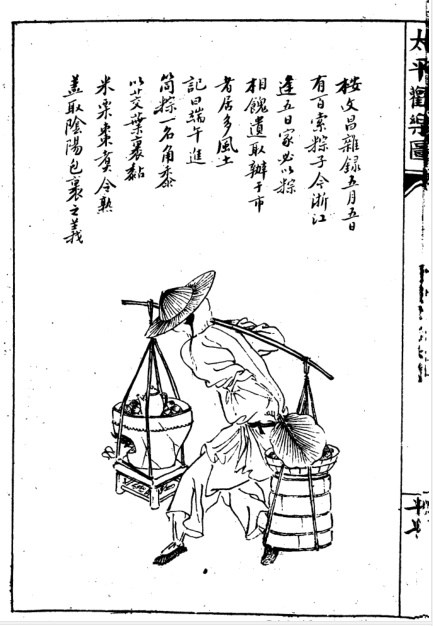 太平歡樂圖
按文昌雜録五月五日
有百索粽子今浙江
逢五日家必以粽
相餽遺取辦于市
者居多風土
記曰端午進
筒粽一名角黍
以菰葉裹黏
米栗棗煮令熟
蓋取陰陽包裹之義